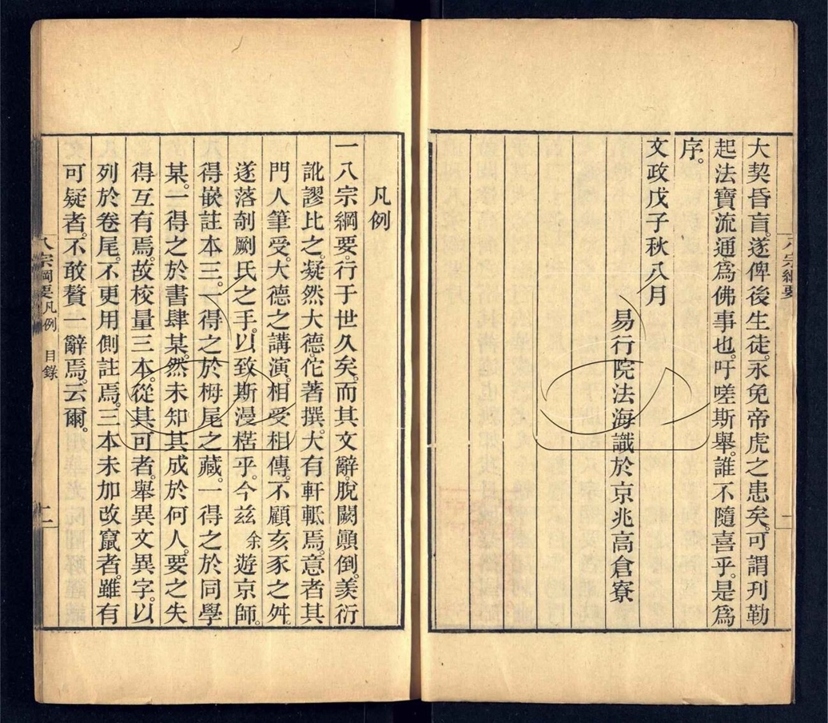 大契昏盲。遂俾後生徒。永免帝虎之患矣。可謂刊勒
起法寶流通。爲佛事也。吁嗟斯舉。誰不隨喜乎。是爲
序。
文政戊子秋八月
易行院法海識於京兆高倉寮
八宗綱要
一
凡例
一八宗綱要。行于世久矣。而其文辭脫闕顚倒。羡衍
訛謬比之。凝然大德佗著撰。大有軒軾焉。意者其
門人筆受。大德之講演。相受相傳。不顧亥豕之舛
遂落剞劂氏之手。以致斯漫楛乎。今茲余遊京師。
得嵌註本三。一得之於栂尾之藏。一得之於同學
某。一得之於書肆某。然未知其成於何人。要之失
得互有焉。故校量三本。從其可者。舉異文異字。以
列於卷尾。不更用側註焉。三本未加改竄者。雖有
可疑者。不敢贅一辭焉。云爾。
八宗綱要 凡例 目錄
二